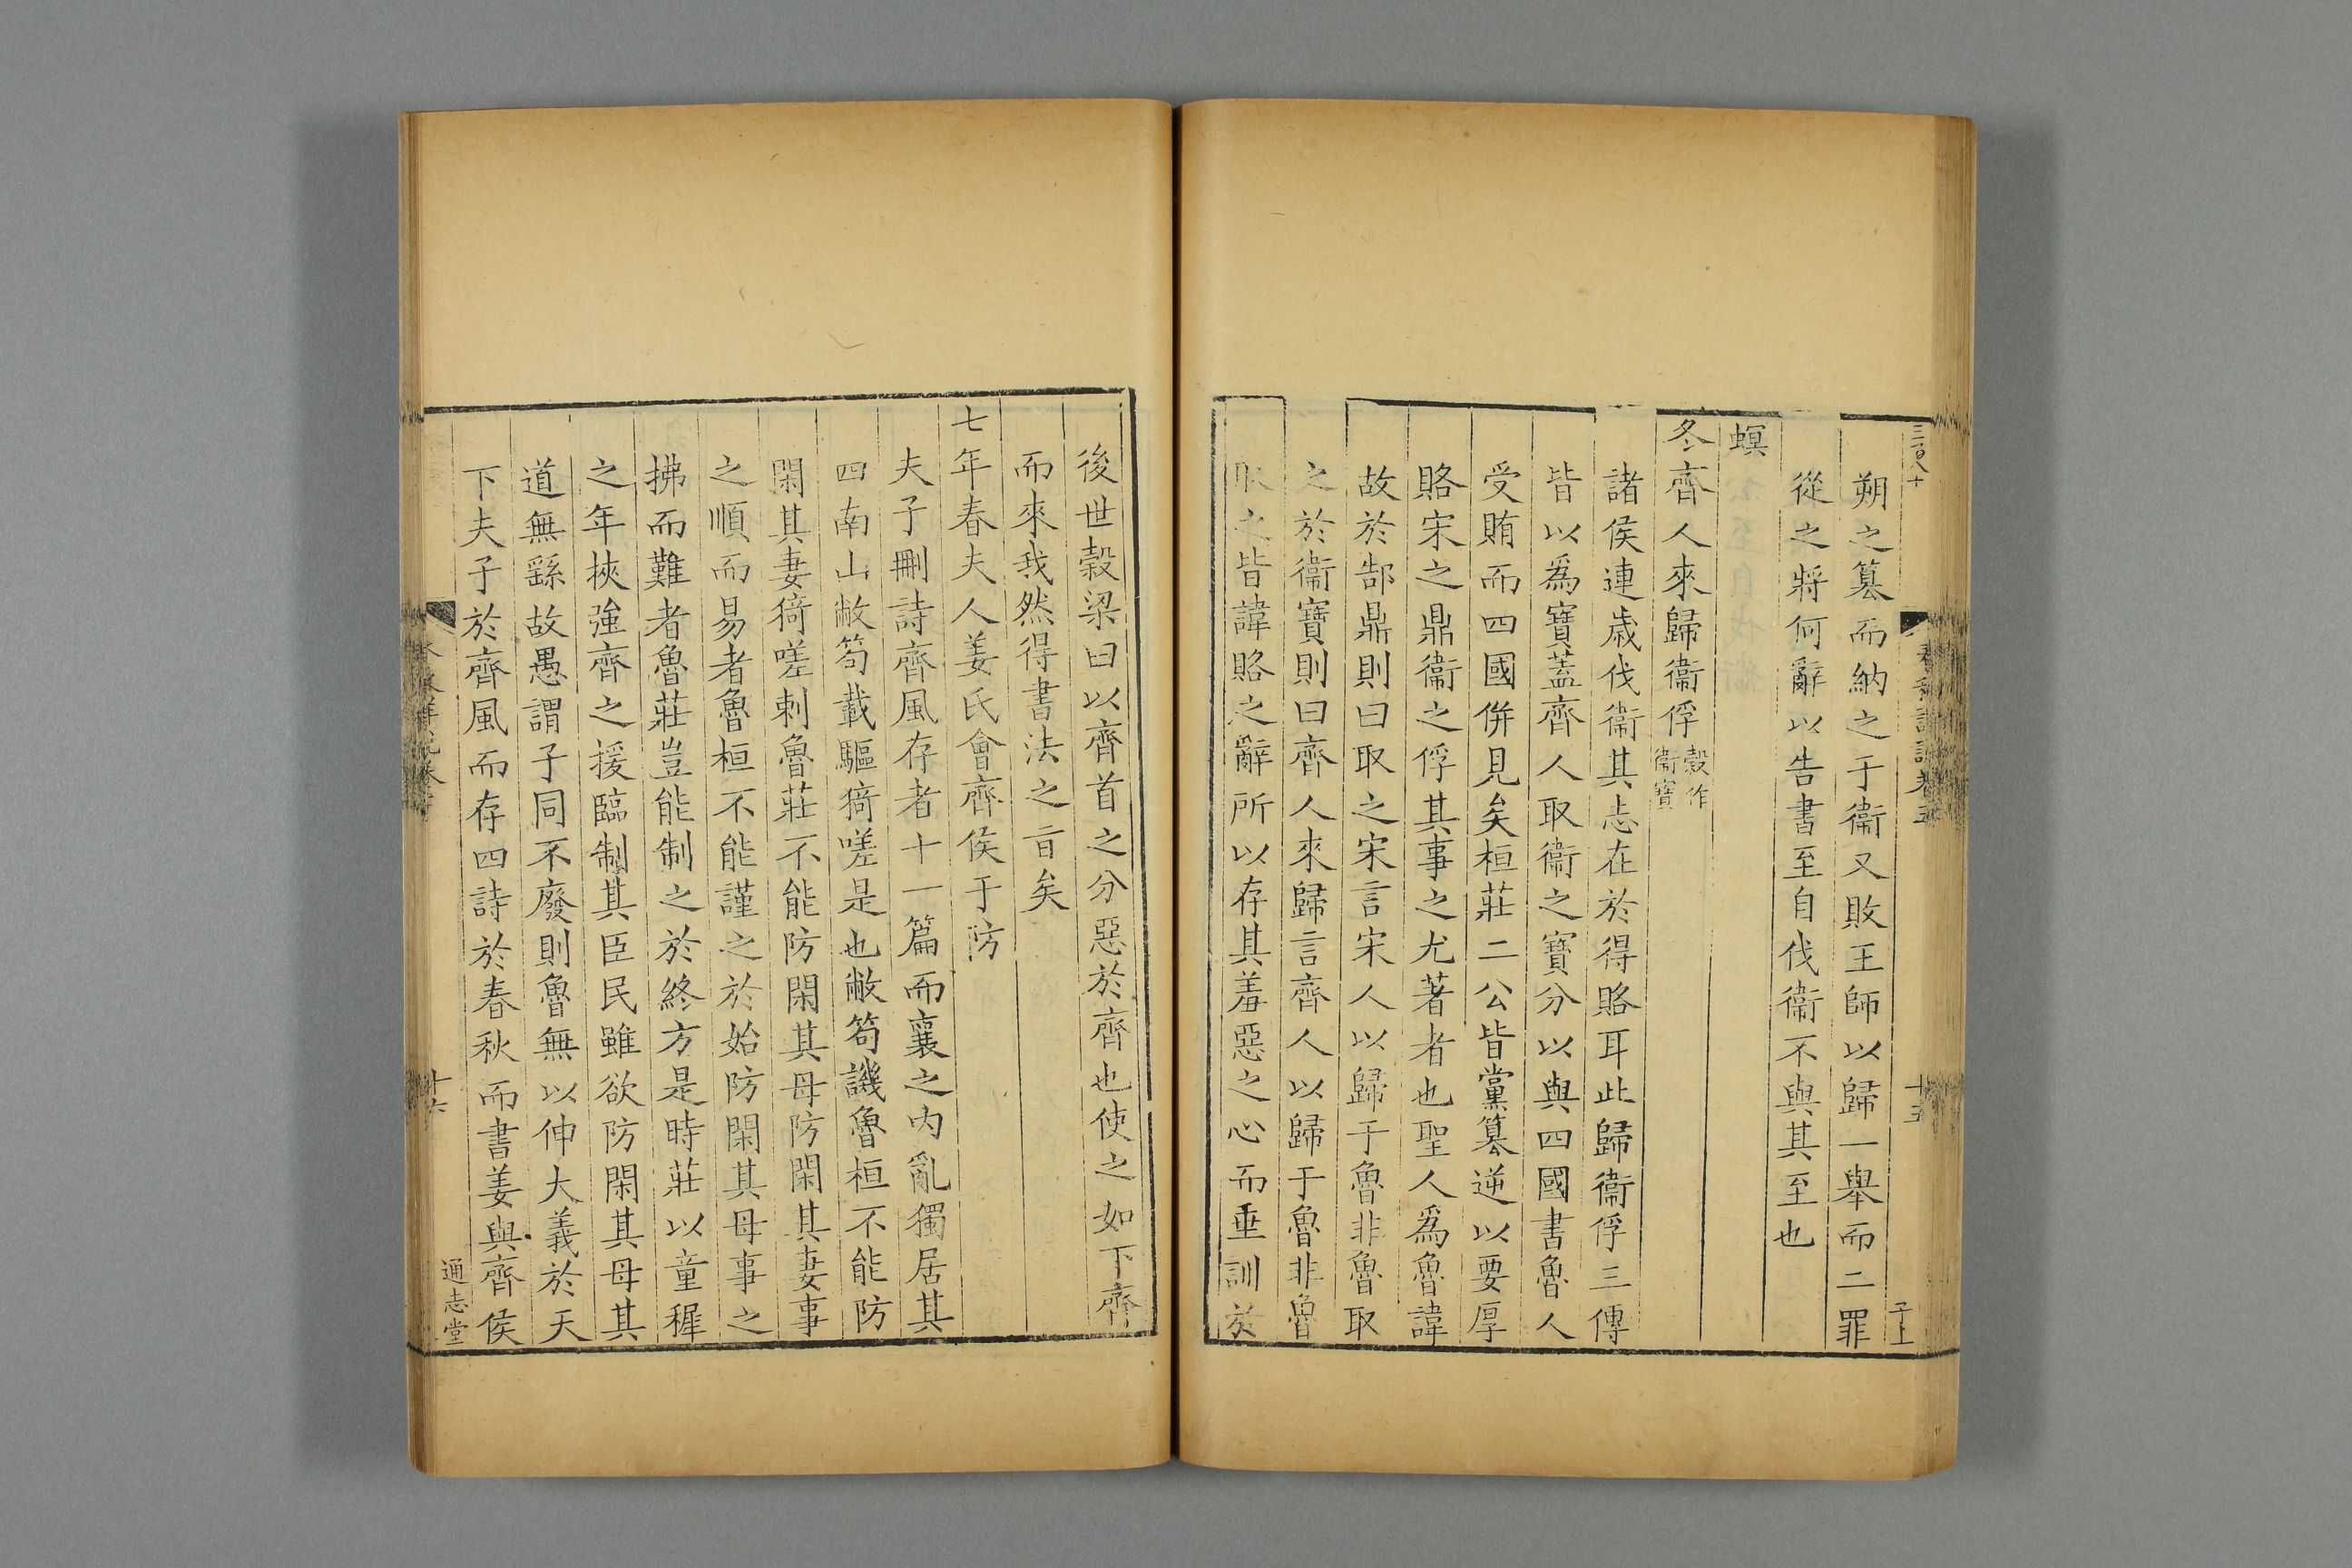 三百八十
朔之篡而納之于衞又敗王師以歸一舉而二罪
從之將何辭以告書至自伐衞不與其至也
螟
冬齊人來歸衞俘榖作衞寶
諸侯連歳伐衞其志在於得賂耳此歸衞俘三傳
皆以為寶蓋齊人取衞之寶分以與四國書魯人
受賄而四國併見矣桓莊二公皆黨篡逆以要厚
賂宋之鼎衞之俘其事之尤著者也聖人爲魯諱
故於郜鼎則曰取之宋言宋人以歸于魯非魯取
之於衞寶則曰齊人來歸言齊人以歸于魯非魯
取之皆諱賂之辭所以存其羞惡之心而垂訓於
十五
子上
後世榖梁曰以齊首之分惡於齊也使之如下齊
而來我然得書法之㫖矣
七年春夫人姜氏會齊侯于防
夫子刪詩齊風存者十一篇而襄之内亂獨居其
四南山敝笱載驅猗嗟是也敝笱譏魯桓不能防
閑其妻猗嗟刺魯莊不能防閑其母防閑其妻事
之順而易者魯桓不能謹之於始防閑其母事之
拂而難者魯莊豈能制之於終方是時莊以童穉
之年挾強齊之援臨制其臣民雖欲防閑其母其
道無繇故愚謂子同不廢則魯無以伸大義於天
下夫子於齊風而存四詩於春秋而書姜與齊侯
十六
通志堂